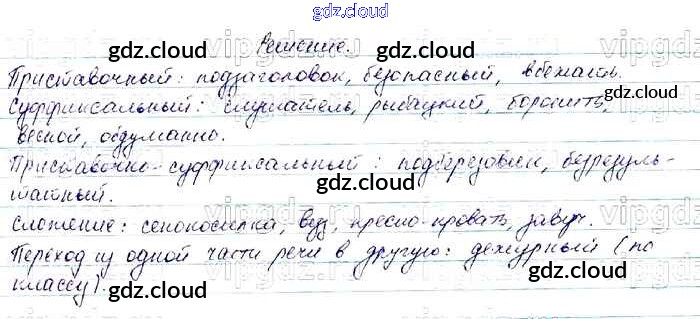 gdz.cloud
Решение.
Приставочный: подзаголовок, безопасный, вбежать.
Суффиксальный: слушатель, рыбацкий, боронить,
весной, обдуманно.
Приставочно-суффиксальный: подберёзовик, безрезуль-
татный.
Сложение: сенокосилка, вуз, пресс-кровать, завуч.
Переход из одной части речи в другую: дежурный (по
классу).